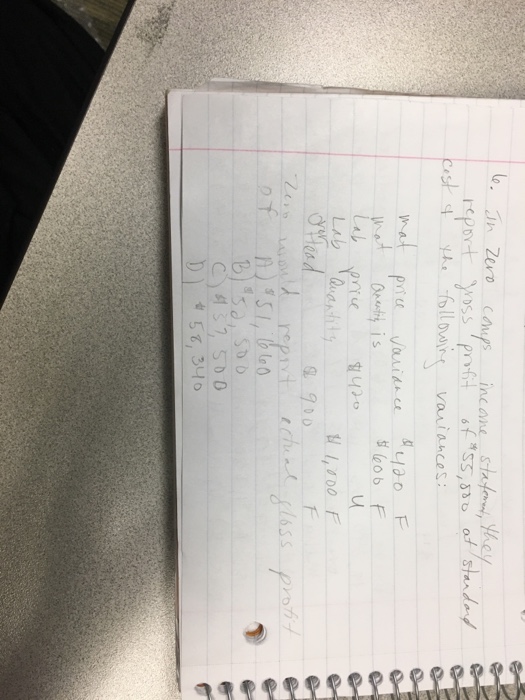 6. In Zero comps income statemt, they
report gross profit of $55,000 at standard
cost & the following variances:
mat price variance $420 F
mat Quantity is $600 F
Lab price $420 U
Lab Quantity $1,000 F
over Head $900 F
Zero would report actual gross profit
of A) $51,660
B) $52,500
C) $57,500
D) $58,340